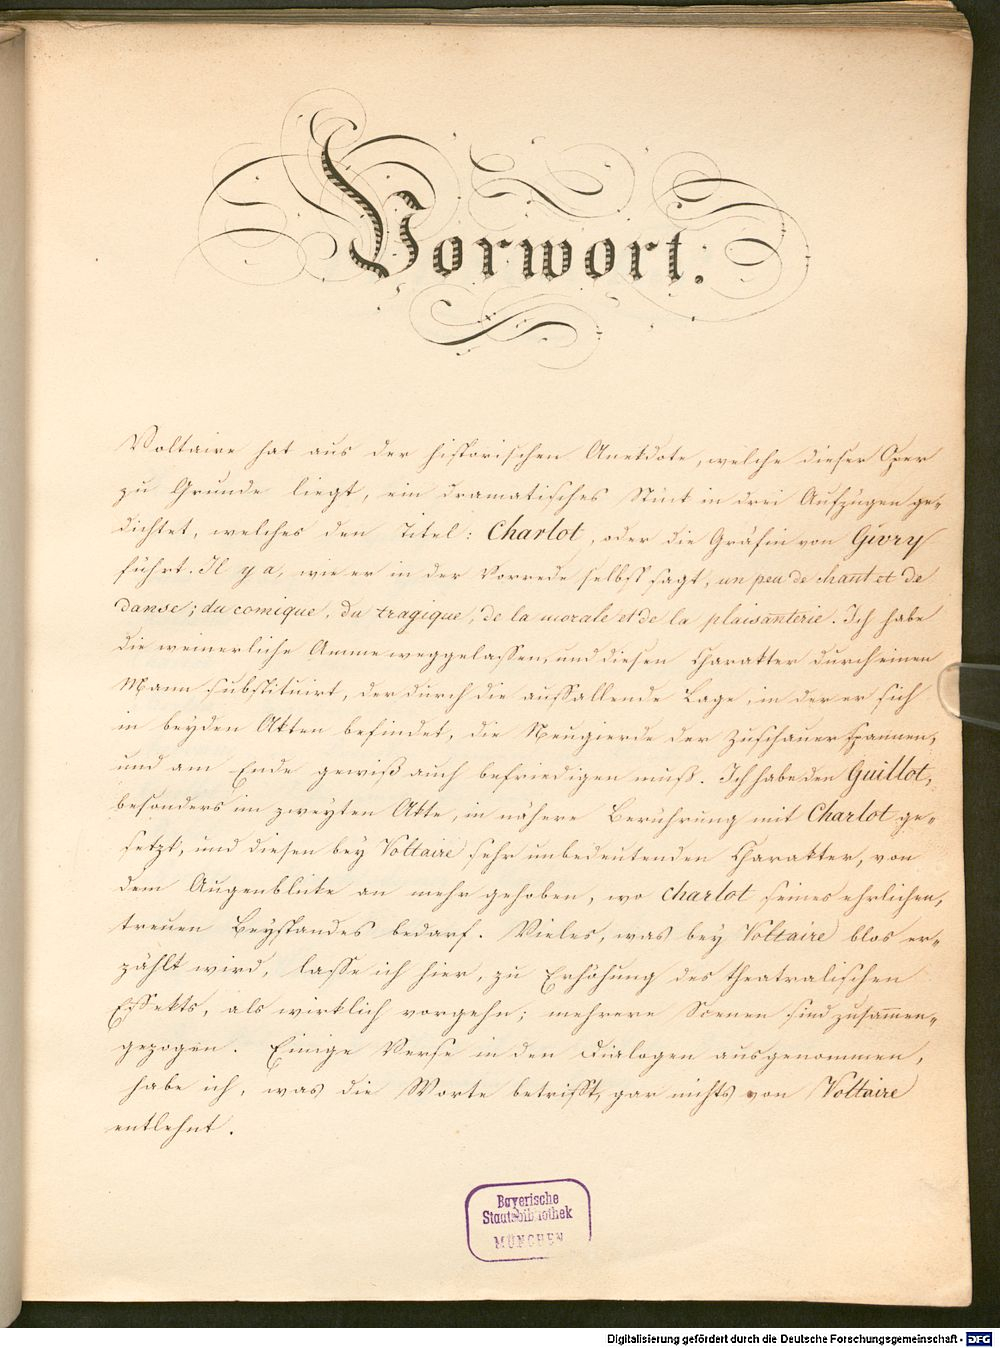 Vorwort.
Voltaire hat aus der historischen Anekdote, welche dieser Oper
zu Grunde liegt, ein dramatisches Stück in drei Aufzügen ge-
dichtet, welches den Titel: Charlot, oder die Gräfin von Givry
führt. Il y a, wie er in der Vorrede selbst sagt, un peu de chant et de
danse; du comique, du tragique, de la morale et de la plaisanterie. Ich habe
die weinerliche Amme weggelassen, und diesen Charakter durch einen
Mann substituirt, der durch die auffallende Lage, in der er sich
in beyden Akten befindet, die Neugierde der Zuschauer spannen,
und am Ende gewiß auch befriedigen muß. Ich habe den Guillot,
besonders im zweyten Akte, in nähere Berührung mit Charlot ge-
setzt, und diesen bey Voltaire sehr unbedeutenden Charakter, von
dem Augenblicke an mehr gehoben, wo Charlot seines ehrlichen,
treuen Beystandes bedarf. Vieles, was bey Voltaire blos er-
zählt wird, lasse ich hier, zu Erhöhung des theatralischen
Effekts, als wirklich vorgehn; mehrere Scenen sind zusam̄en-
gezogen. Einige Verse in den Dialogen ausgenommen,
habe ich, was die Worte betrifft, gar nichts von Voltaire
entlehnt.
Bayerische
Staatsbibliothek
MÜNCHEN
Digitalisierung gefördert durch die Deutsche Forschungsgemeinschaft - DFG